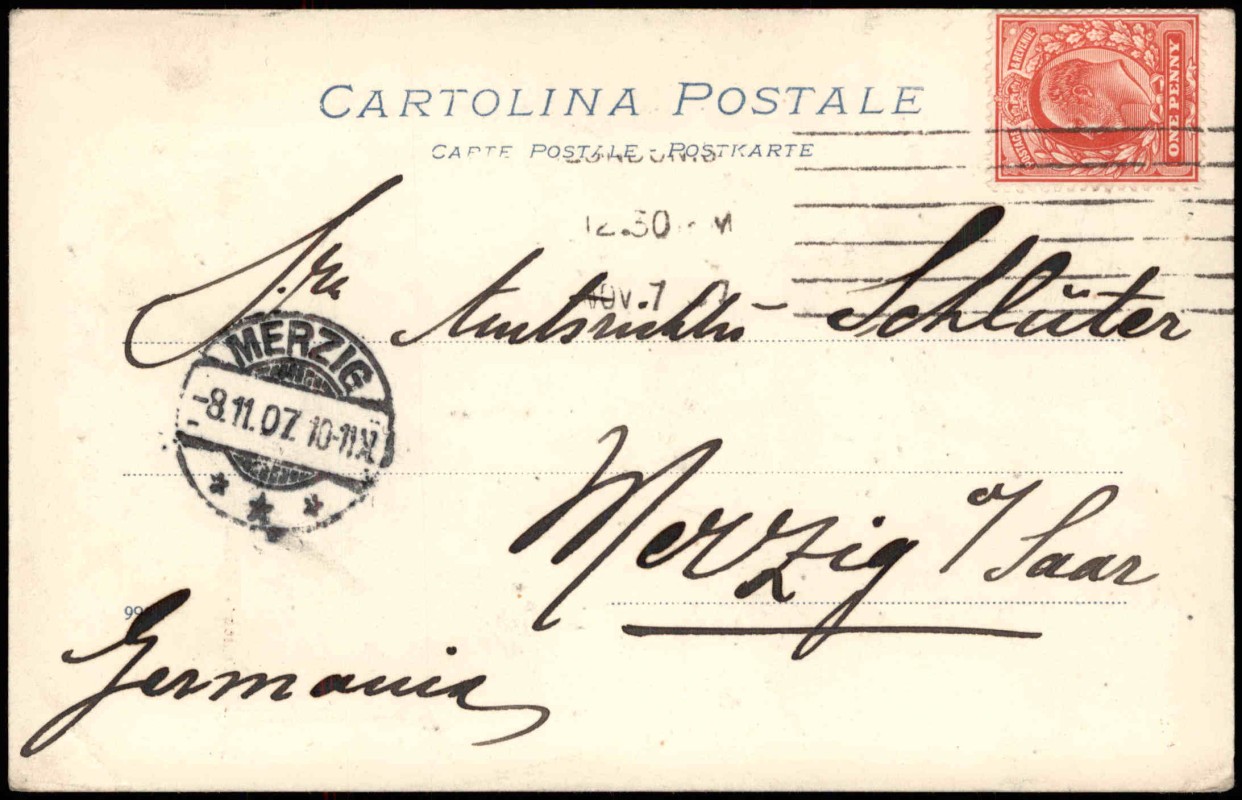 CARTOLINA POSTALE
CARTE POSTALE - POSTKARTE
POSTAGE & REVENUE
ONE PENNY
12.30 M
NOV. 7 07
Amtsrichter Schlüter
MERZIG
-8.11.07. 10-11
Merzig a/Saar
Germania